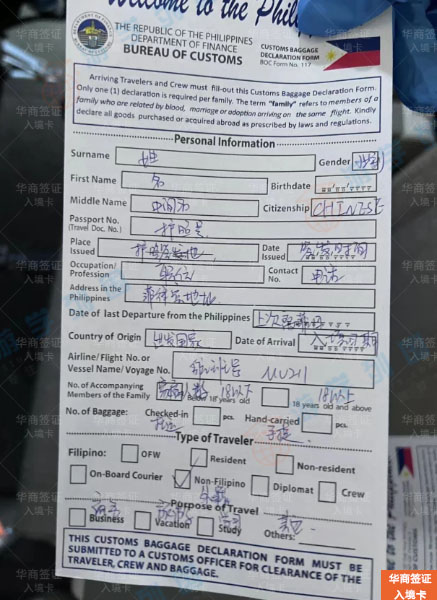 Welcome to the Phili
THE REPUBLIC OF THE PHILIPPINES
DEPARTMENT OF FINANCE
BUREAU OF CUSTOMS
CUSTOMS BAGGAGE
DECLARATION FORM
BOC Form No. 117
Arriving Travelers and Crew must fill-out this Customs Baggage Declaration Form.
Only one (1) declaration is required per family. The term "family" refers to members of a
family who are related by blood, marriage or adoption arriving on the same flight. Kindly
declare all goods purchased or acquired abroad as prescribed by laws and regulations.
Personal Information
Surname 姓 Gender 性别
First Name 名 Birthdate
Middle Name 中间名 Citizenship CHINESE
Passport No. 护照号
(Travel Doc. No.)
Place Issued 护照签发地 Date Issued 签发时间
Occupation/ Profession 职位 Contact No. 电话
Address in the Philippines 菲律宾地址
Date of last Departure from the Philippines 上次
Country of Origin 出发国家 Date of Arrival 入境日期
Airline/Flight No. or
Vessel Name/ Voyage No. 航班号 MU211
No. of Accompanying
Members of the Family 18以下 Below 18 years old 18以上 18 years old and above
No. of Baggage: Checked-in pcs. Hand-carried pcs.
托运 手提
Type of Traveler
Filipino: OFW Resident Non-resident
On-Board Courier Non-Filipino Diplomat Crew
Purpose of Travel
Business Vacation Study Others:
THIS CUSTOMS BAGGAGE DECLARATION FORM MUST BE
SUBMITTED TO A CUSTOMS OFFICER FOR CLEARANCE OF THE
TRAVELER, CREW AND BAGGAGE.
华商签证
入境卡